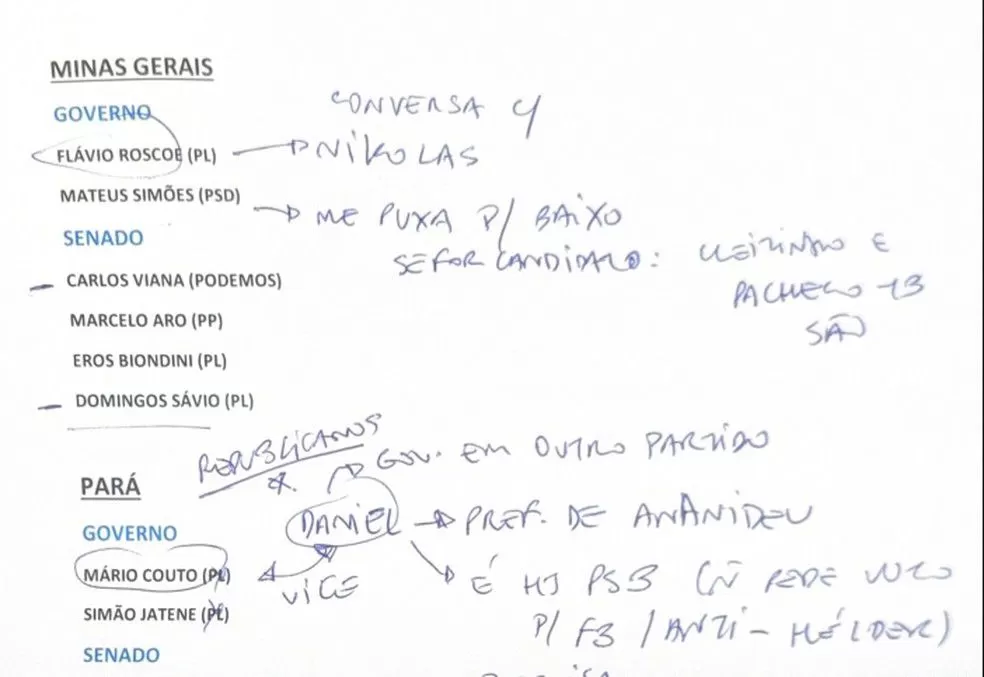 MINAS GERAIS
GOVERNO
CONVERSA C/
FLÁVIO ROSCOE (PL) NIKOLAS
MATEUS SIMÕES (PSD)
ME PUXA P/ BAIXO
SENADO
SE FOR CANDIDATO: CLEITINHO E
CARLOS VIANA (PODEMOS)
PACHECO
MARCELO ARO (PP)
EROS BIONDINI (PL)
DOMINGOS SÁVIO (PL)
REPUBLICANOS
GOV. EM OUTRO PARTIDO
PARÁ
GOVERNO
DANIEL PREF. DE ANANIDEU
MÁRIO COUTO (PL)
VICE
É HJ PSB (Ñ PEDE VOTO
SIMÃO JATENE (PL)
P/ FB / ANTI-HÉLDER)
SENADO